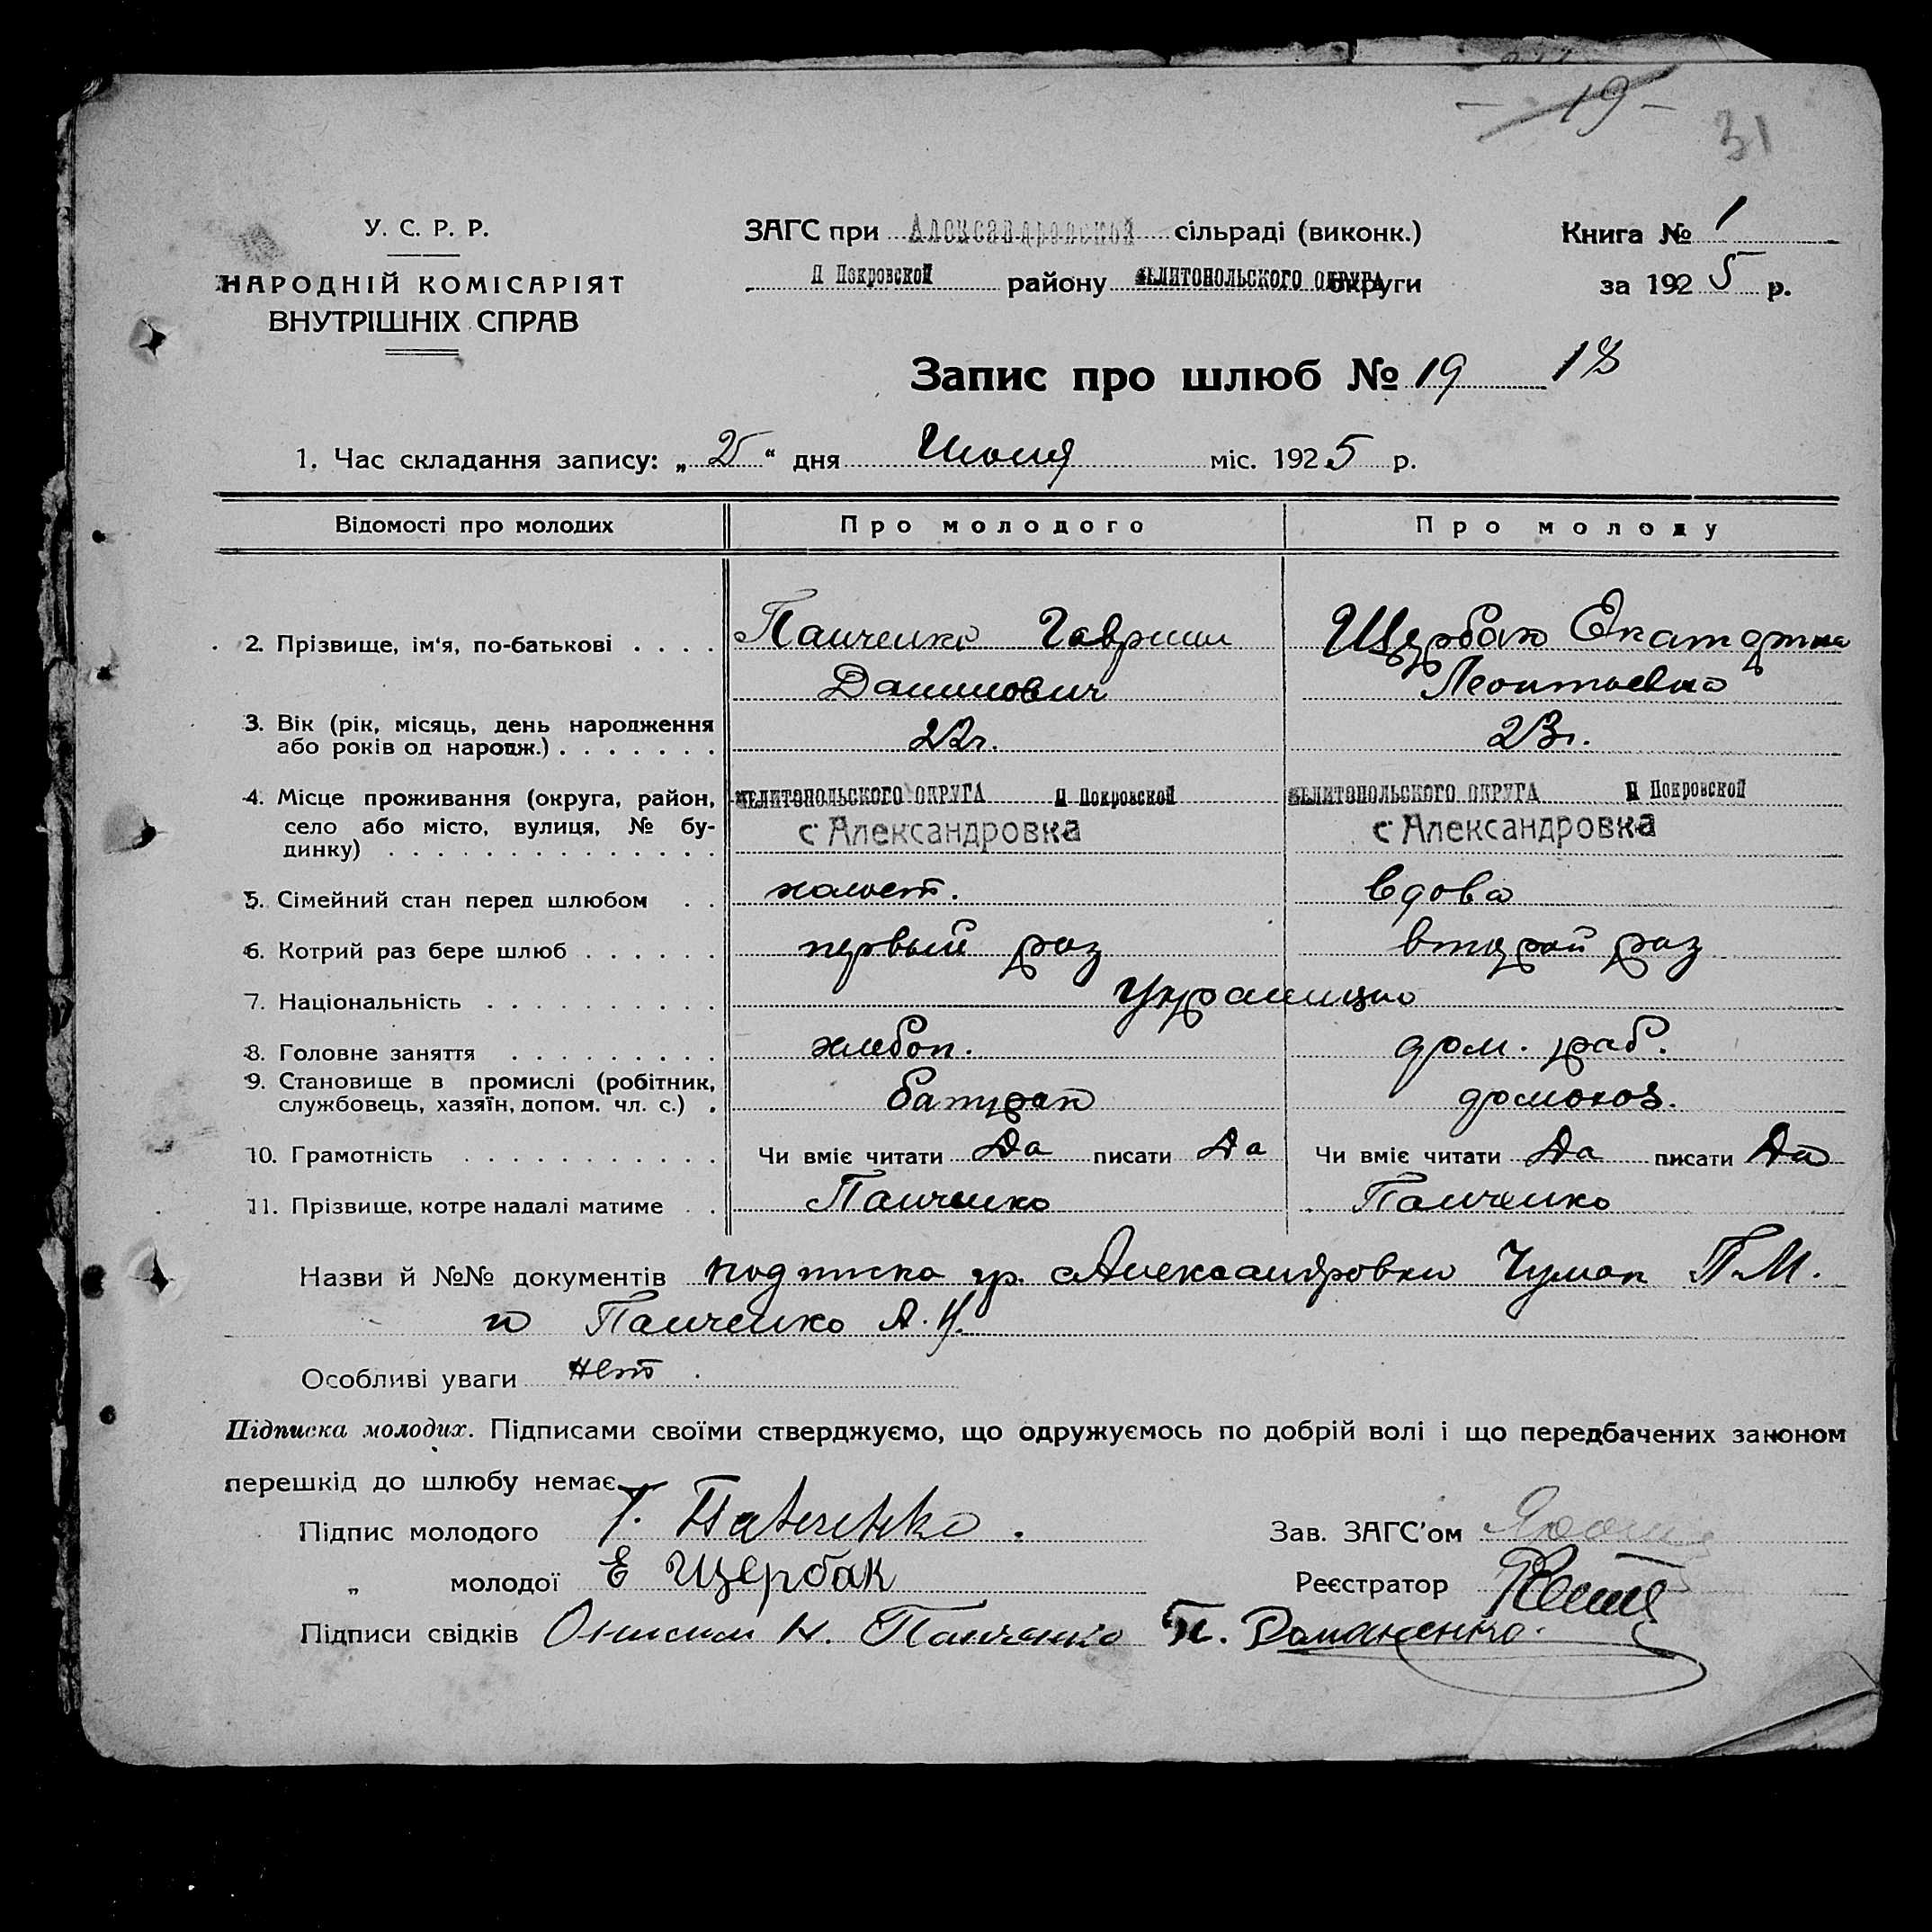 - 19 -
31
У. С. Р. Р.
НАРОДНІЙ КОМІСАРІЯТ
ВНУТРІШНІХ СПРАВ
ЗАГС при Александровской сільраді (виконк.)
П Покровской району МЕЛИТОПОЛЬСКОГО ОКРУГА округи
Книга № 1
за 1925 р.
Запис про шлюб № 19 18
1. Час складання запису: „ “ дня міс. 1925 р.
Відомості про молодих Про молодого Про молоду
2. Прізвище, ім'я, по-батькові . . . . Панченко Гавриил Щербак Екатерина
Данилович Леонтьевна
3. Вік (рік, місяць, день народження
або років од народж.) . . . . . . . 22г. 23г.
4. Місце проживання (округа, район, МЕЛИТОПОЛЬСКОГО ОКРУГА П Покровской МЕЛИТОПОЛЬСКОГО ОКРУГА П Покровской
село або місто, вулиця, № бу- с Александровка с Александровка
динку) . . . . . . . . . . . . . .
5. Сімейний стан перед шлюбом . . холост. вдова
6. Котрий раз бере шлюб . . . . . . первый раз второй раз
7. Національність . . . . . . . . . .
8. Головне заняття . . . . . . . . . хлебоп. дом. раб.
9. Становище в промислі (робітник,
службовець, хазяїн, допом. чл. с.) . батрак домохоз.
10. Грамотність . . . . . . . . . . . Чи вміє читати Да писати Да Чи вміє читати Да писати Да
11. Прізвище, котре надалі матиме . . Панченко Панченко
Назви й №№ документів подписка гр. Александровки Чумак П.М.
и Панченко А.
Особливі уваги нет .
Підписка молодих. Підписами своїми стверджуємо, що одружуємось по добрій волі і що передбачених законом
перешкід до шлюбу немає
Підпис молодого Г. Панченко .
Зав. ЗАГС'ом
„ молодої Е Щербак
Реєстратор
Підписи свідків Онисим Н. Панченко П. Романенко.